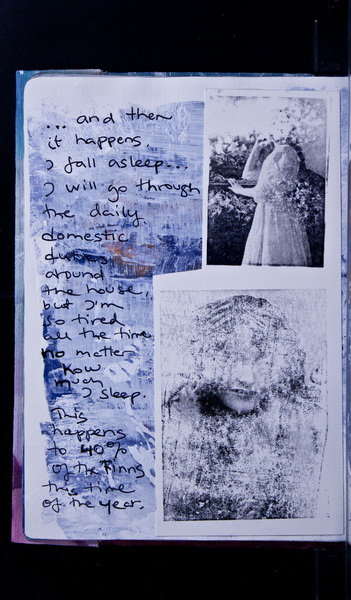 ... and then
it happens.
I fall asleep...
I will go through
the daily
domestic
duties
around
the house,
but I'm
so tired
all the time
no matter
how
much
I sleep.
This
happens
to 40%
of the Finns
this time
of the year.